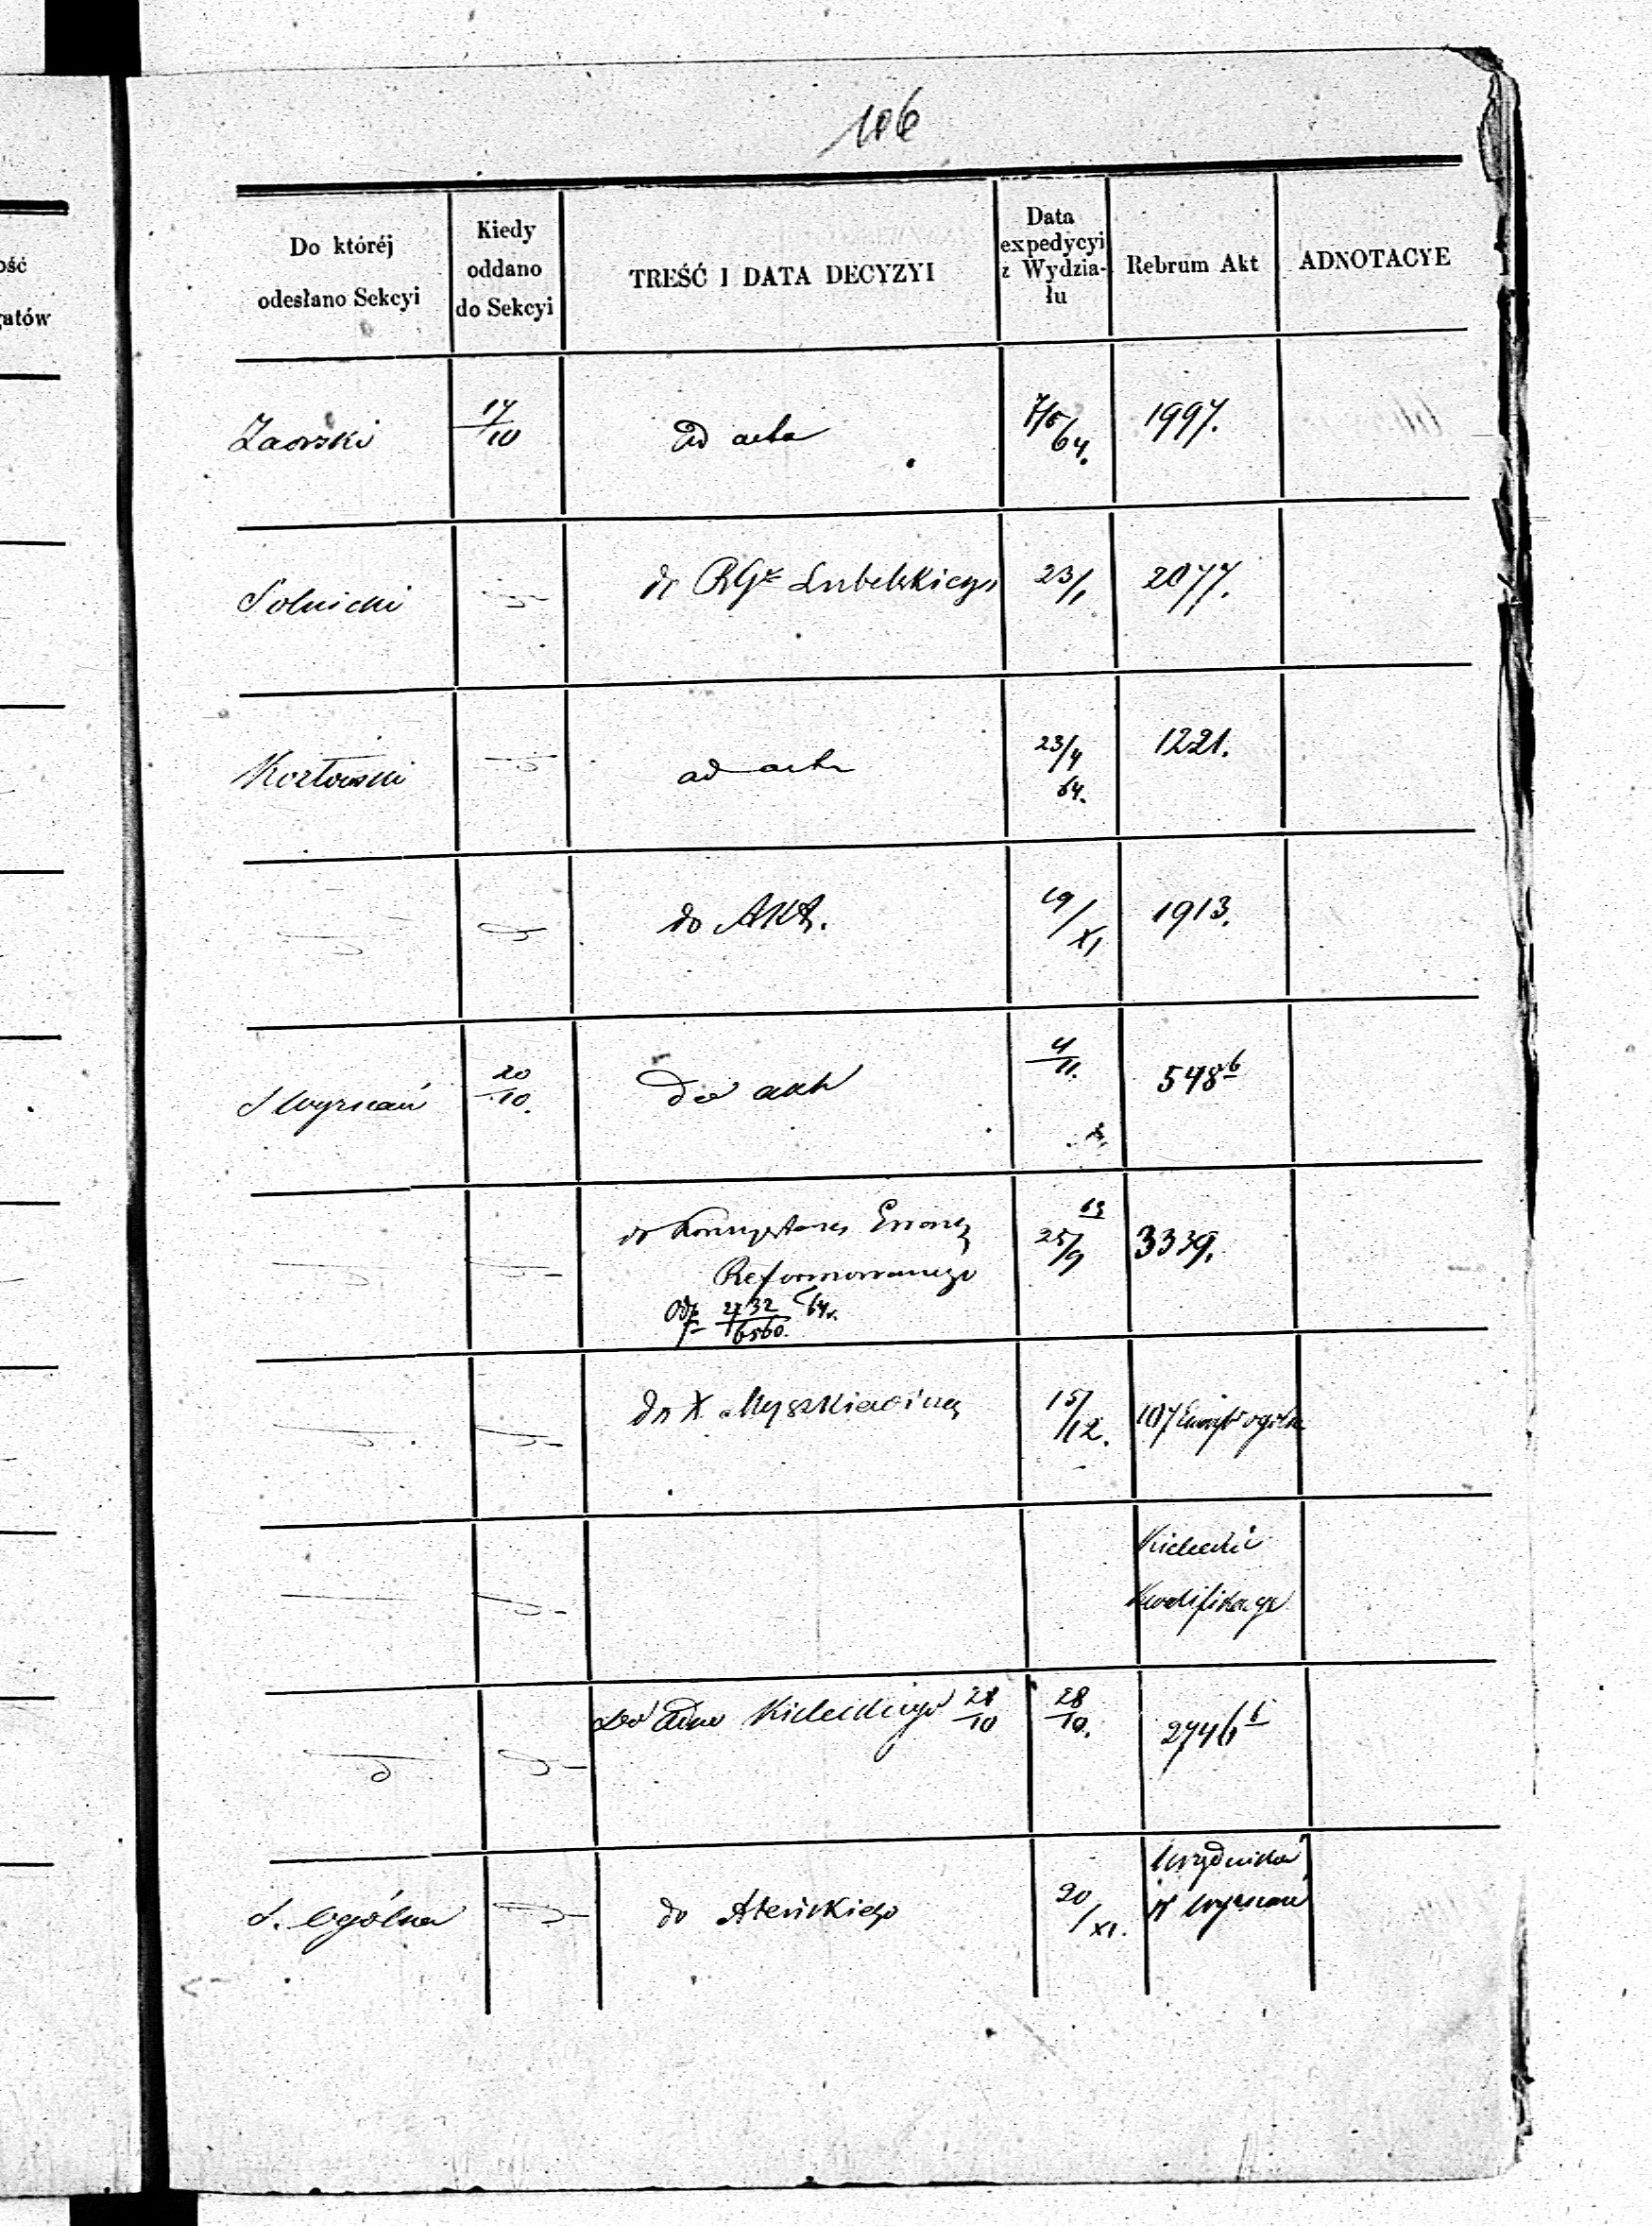 106
ość
gatów
Do któréj
odesłano Sekcyi
Kiedy
oddano
do Sekcyi
TREŚĆ I DATA DECYZYI
Data
expedycyi
z Wydzia-
łu
Rebrum Akt
ADNOTACYE
Zaorski
17/10
ad acta
7/5/64.
1997.
Solnicki
do RGu Lubelskiego
23/1
2077.
Kozłowski
ad acta
23/4
64.
1221.
do Akt.
19/XI
1913.
S Wyznań
20/10.
do akt
4/11.
548 b
do Konsystorza Ewang
Reformowanego
2732/6560. 64.
63
25/9
3339.
do X. Myszkiewicza
15/12.
107
Kieleckie
Kwalifikacye
Kieleckiego 28/10
28/10.
2746 b
S. Ogólna
do
20/XI.
Urzędnika
W Wyznań